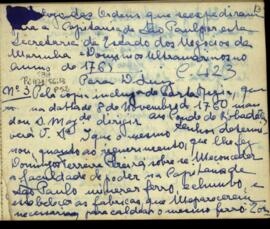 das Ordens que se expediram
para a Capitania de São Paulo por esta
Secretaria de Estado dos Negocios da
Marinha e Dominios Ultramarinos no
anno de 1765
C. 423
Para D. Luiz
Nº 3 Pela copia incluza da Carta Regia, que
na data de 8 de Novembro de 1760 man
dou S. Mag. dirigir ao Conde de Bobadela
verá V. S. que o mesmo Senhor determi
nou, quanto ao requerimento, que lhe fez
Domingos Ferreira Pereira, sobre se lhe conceder
a faculdade de poder na Capitania de
São Paulo minerar ferro, e chumbo, e
estabelecer as fabricas que lhe parecerem
necessarias para caldear o mesmo ferro